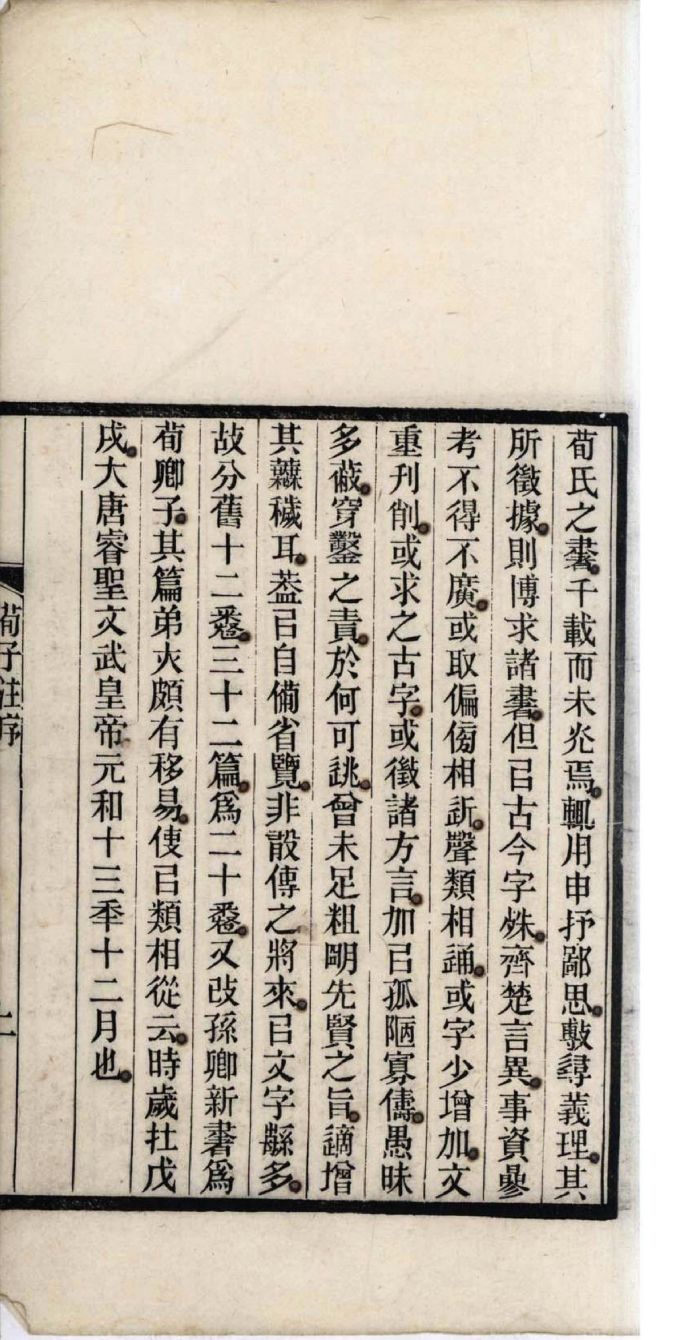 荀氏之書千載而未炗焉輒用申抒鄙思敷尋義理其
所徵據則博求諸書但㠯古今字殊齊楚言異事資參
考不得不廣或取偏傍相近聲類相通或字少增加文
重刊削或求之古字或徵諸方言加㠯孤陋寡儔愚昧
多蔽穿鑿之責於何可逃曾未足粗明先賢之旨適增
其蕪穢耳葢㠯自備省覽非敢傳之將來㠯文字繇多
故分舊十二卷三十二篇爲二十卷又改孫卿新書爲
荀卿子其篇弟亦頗有移易使㠯類相從云時歲在戊
戌大唐睿聖文武皇帝元和十三秊十二月也
荀子注序
二